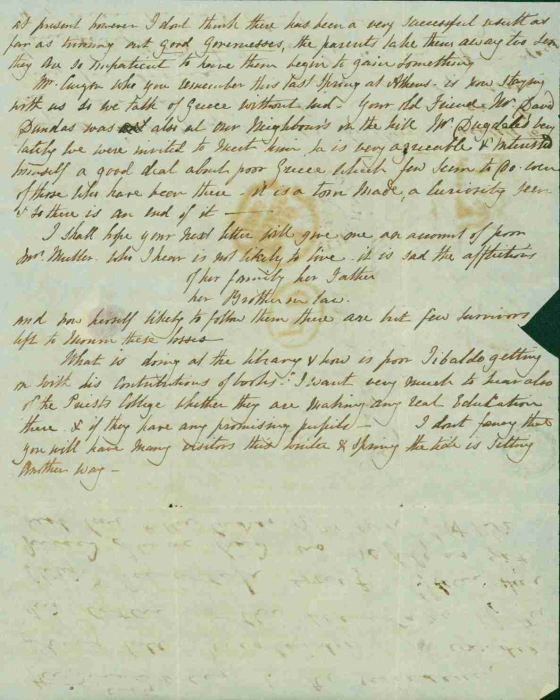 at present however I dont think there has been a very successful result as
far as turning out good Governesses, the parents take them away too soon
they are so impatient to have them begin to gain something
Mr. who you remember this last Spring at Athens is now staying
with us so we talk of Greece without end. your old Friend Mr. David
Dundas was also at our Neighbours on the hill Mr Dugdales
lately we were invited to meet him he is very agreeable & interested
himself a good deal about poor Greece which few seem to do even
of those who have been there. it is a tour made, a curiosity seen
& so there is an end of it —
I shall hope your next letter will give me an account of poor
Mrs. Muller. who I hear is not likely to live. it is sad the afflictions
of her family her Father
her Brother in law.
and now herself likely to follow them there are but few survivors
left to mourn these losses
What is doing at the library & how is poor Tibaldo getting
on with his contributions of books? I want very much to hear also
of the Priests College whether they are making any real Education
there & if they have any promising pupils — I dont fancy that
you will have many visitors this winter & Spring the tide is setting
another way —